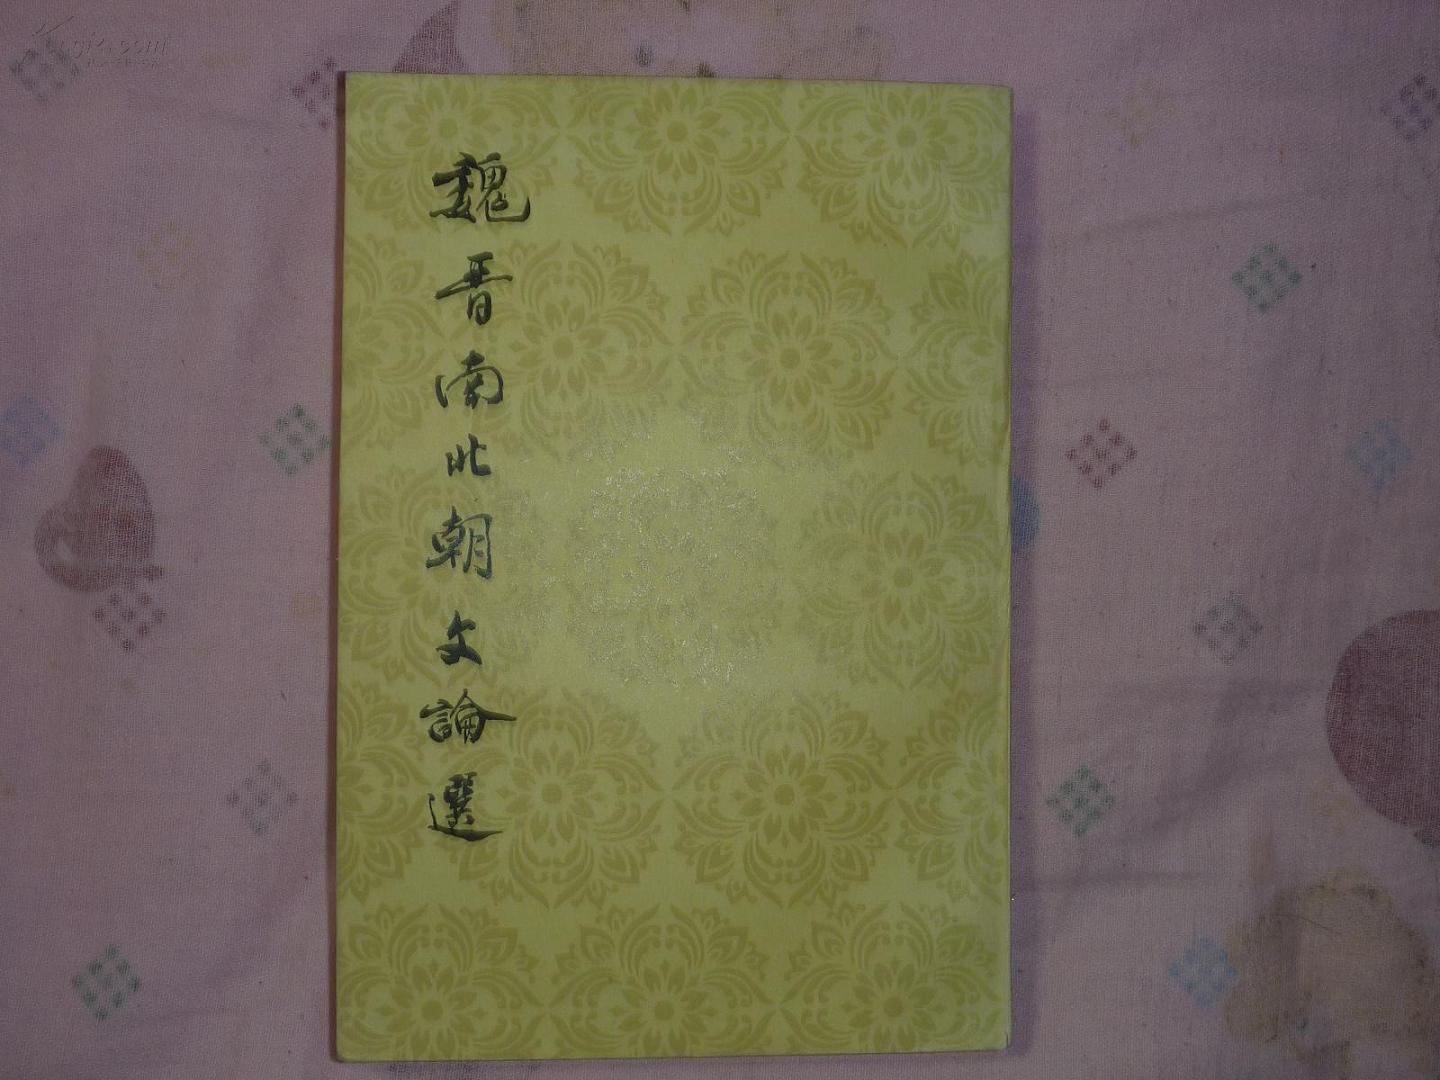 魏晋南北朝文論選